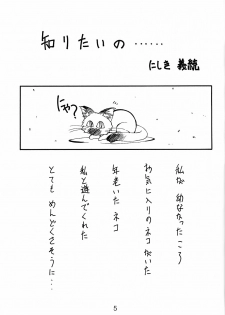 知りたいの……
にしき義統
にゃ?
私が幼なかったころ
お気に入りのネコがいた
年老いたネコ
私と遊んでくれた
とてもめんどくさそうに…
5